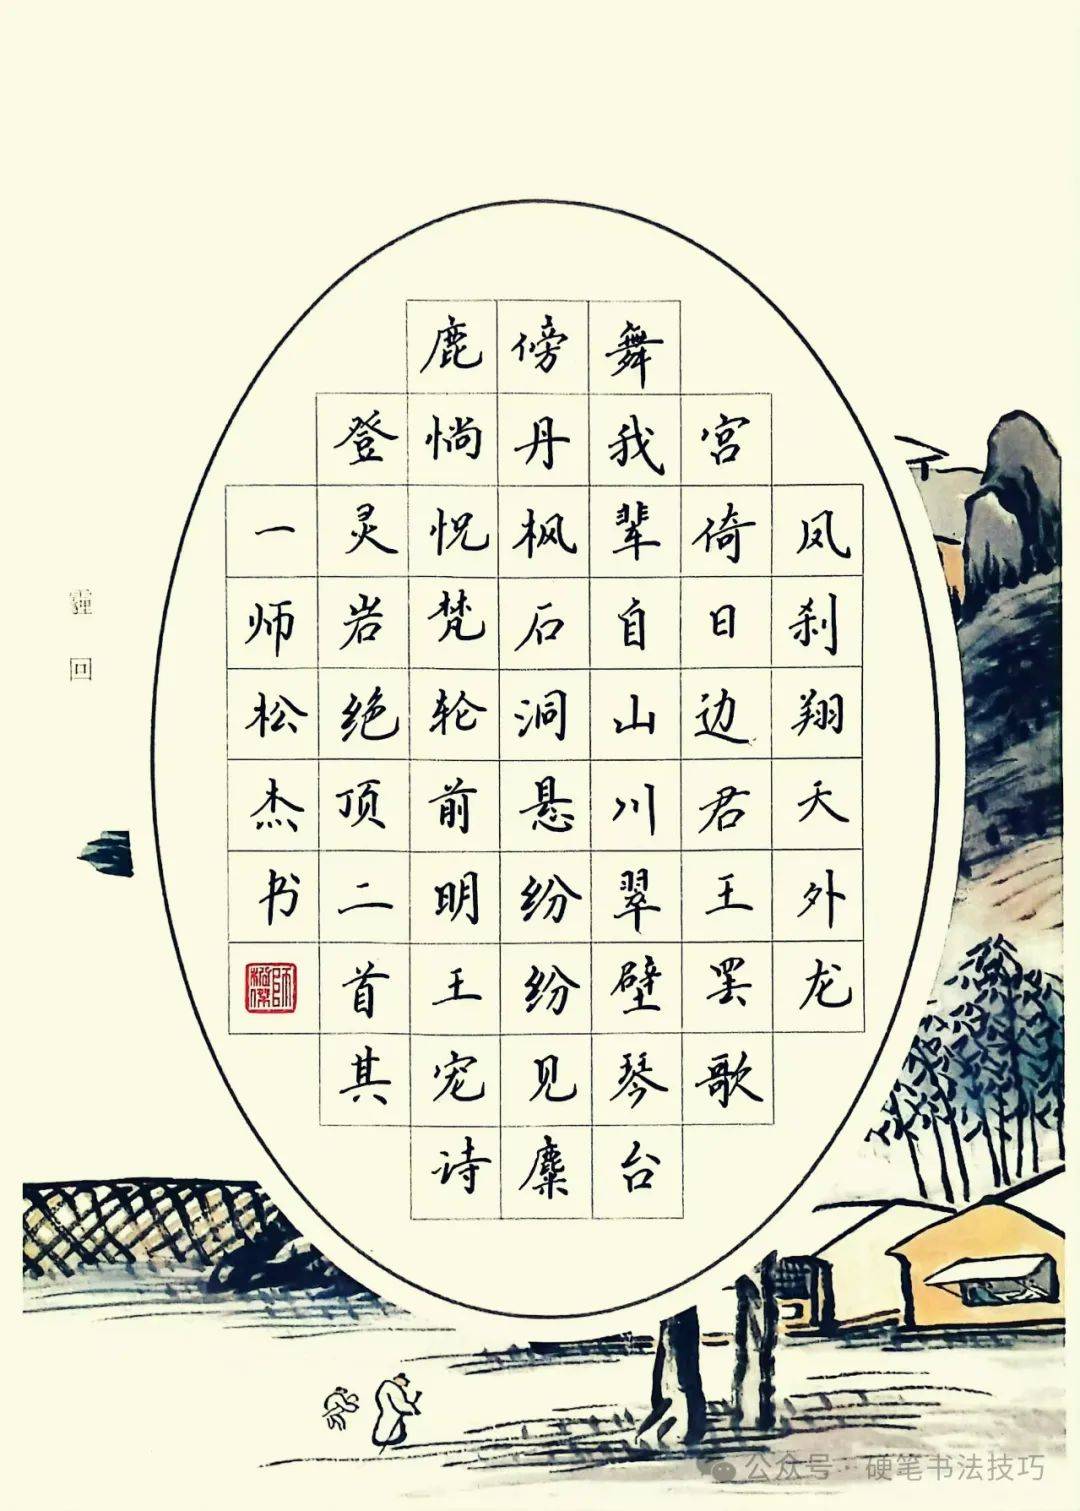 凤刹翔天外龙
宫倚日边君王罢歌
舞我辈自山川翠壁琴台
傍丹枫石洞悬纷纷见麋
鹿惝怳梵轮前明王宠诗
登灵岩绝顶二首其
一师松杰书
師松傑
回
公众号·硬笔书法技巧